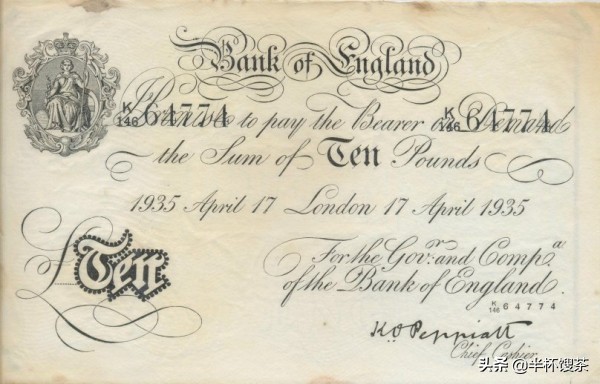 Bank of England
K/146 64774 K/146 64774
I Promise to pay the Bearer on Demand
the Sum of Ten Pounds
1935 April 17 London 17 April 1935
£Ten
For the Govr. and Compa.
of the Bank of England.
K/146 64774
K.O. Peppiatt
Chief Cashier
头条 @半杯馊茶